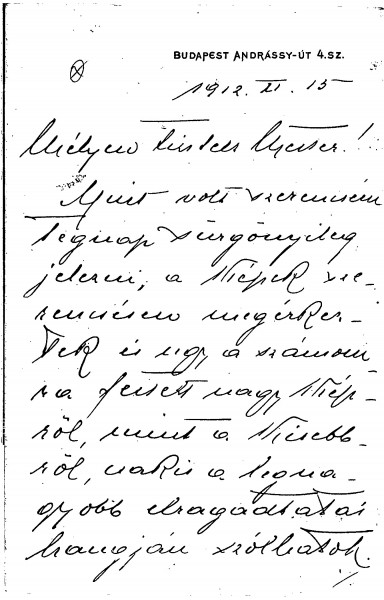 BUDAPEST ANDRÁSSY-ÚT 4.SZ.
1912. XI. 15
Mélyen tisztelt Mester!
Mint volt szerencsém
tegnap sürgönyileg
jelezni, a képek sze-
rencsésen megérkez-
tek és úgy a számom-
ra festett nagy kép-
ről, mint a kisebb-
ről, csakis a legna-
gyobb elragadtatás
hangján szólhatok.